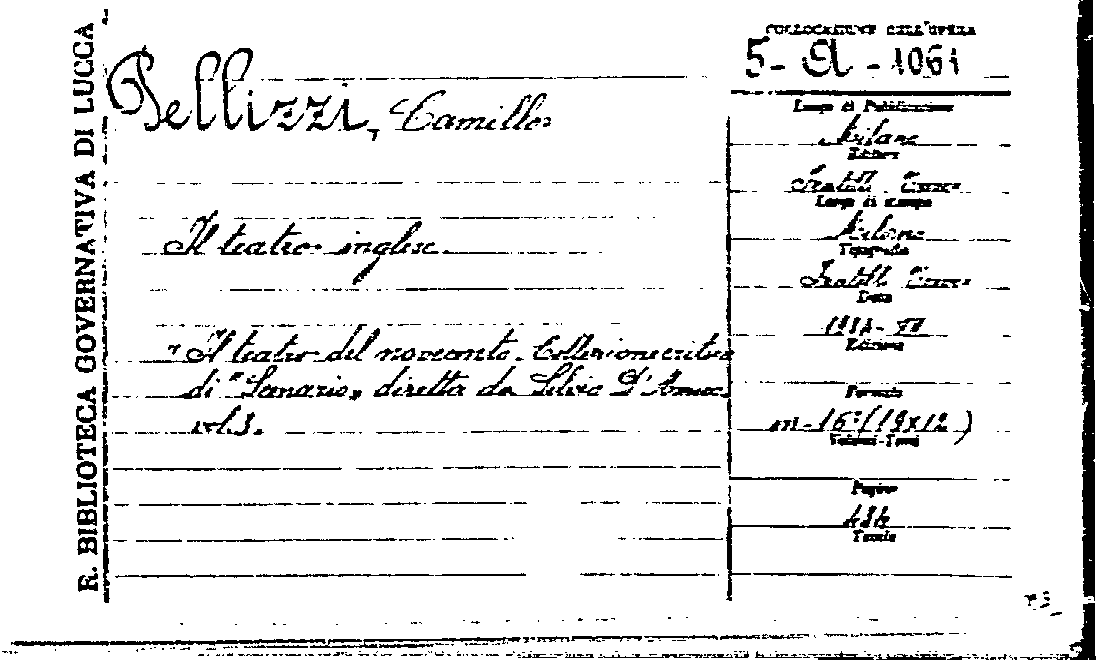 R. BIBLIOTECA GOVERNATIVA DI LUCCA
Pellizzi, Camillo
Il teatro inglese.
"Il teatro del novecento. Collezione critica
di "Scenario" diretta da Silvio D'Amico
vol. 3.
COLLOCAZIONE DELL'OPERA
5 - A - 1061
Luogo di Pubblicazione
Milano
Editore
Fratelli Treves
Luogo di stampa
Milano
Tipografia
Fratelli Treves
Data
1934 - XII
Edizione
Formato
in-16° (19x12)
Volumi-Tomi
Pagine
Tavole